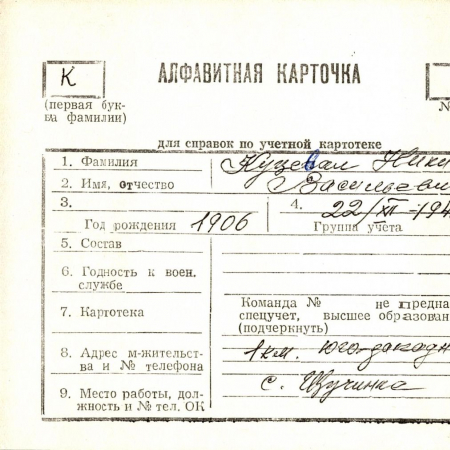 К
АЛФАВИТНАЯ КАРТОЧКА
(первая бук-
ва фамилии)
№
для справок по учетной картотеке
1. Фамилия Куцевал Ники
2. Имя, отчество Васильеви
3.
Год рождения 1906
4. 22/XI-194
Группа учета
5. Состав
6. Годность к воен.
службе
7. Картотека
Команда № не предна
спецучет, высшее образован
(подчеркнуть)
8. Адрес м-жительст-
ва и № телефона
1 км. юго-западн
с. Щучинка
9. Место работы, дол-
жность и № тел. ОК